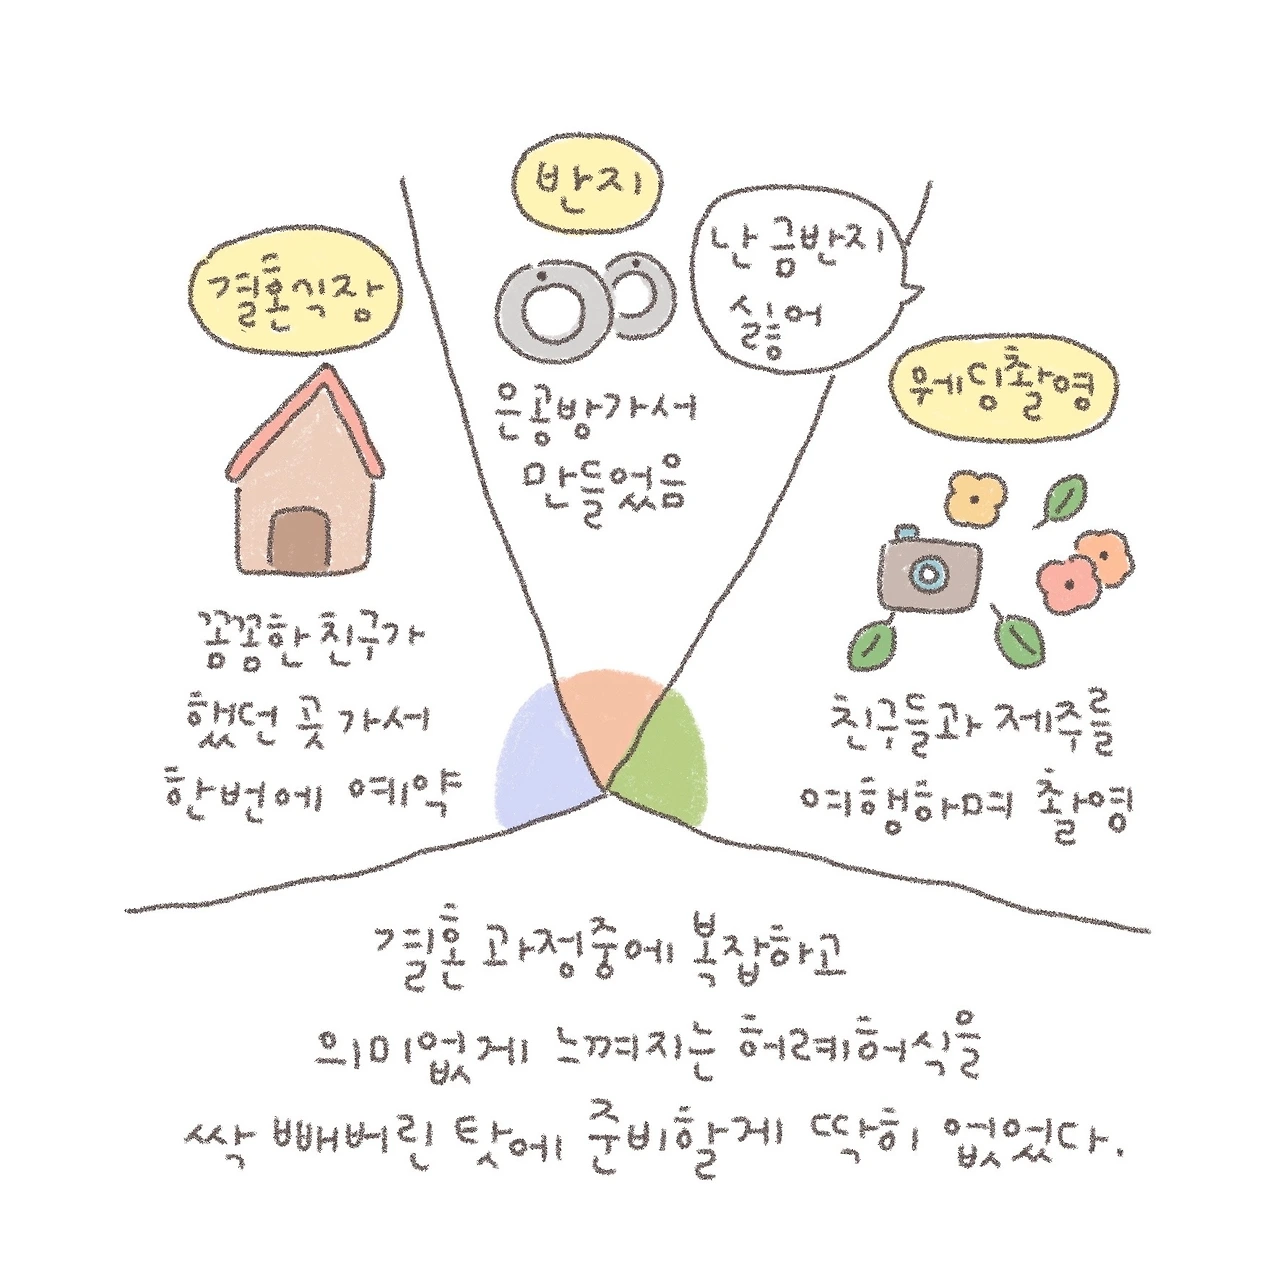 결혼식장
꼼꼼한 친구가
했던 곳 가서
한번에 예약
반지
난 금반지
싫어
은공방가서
만들었음
웨딩촬영
친구들과 제주를
여행하며 촬영
결혼 과정중에 복잡하고
의미없게 느껴지는 허례허식을
싹 빼버린 탓에 준비할게 딱히 없었다.